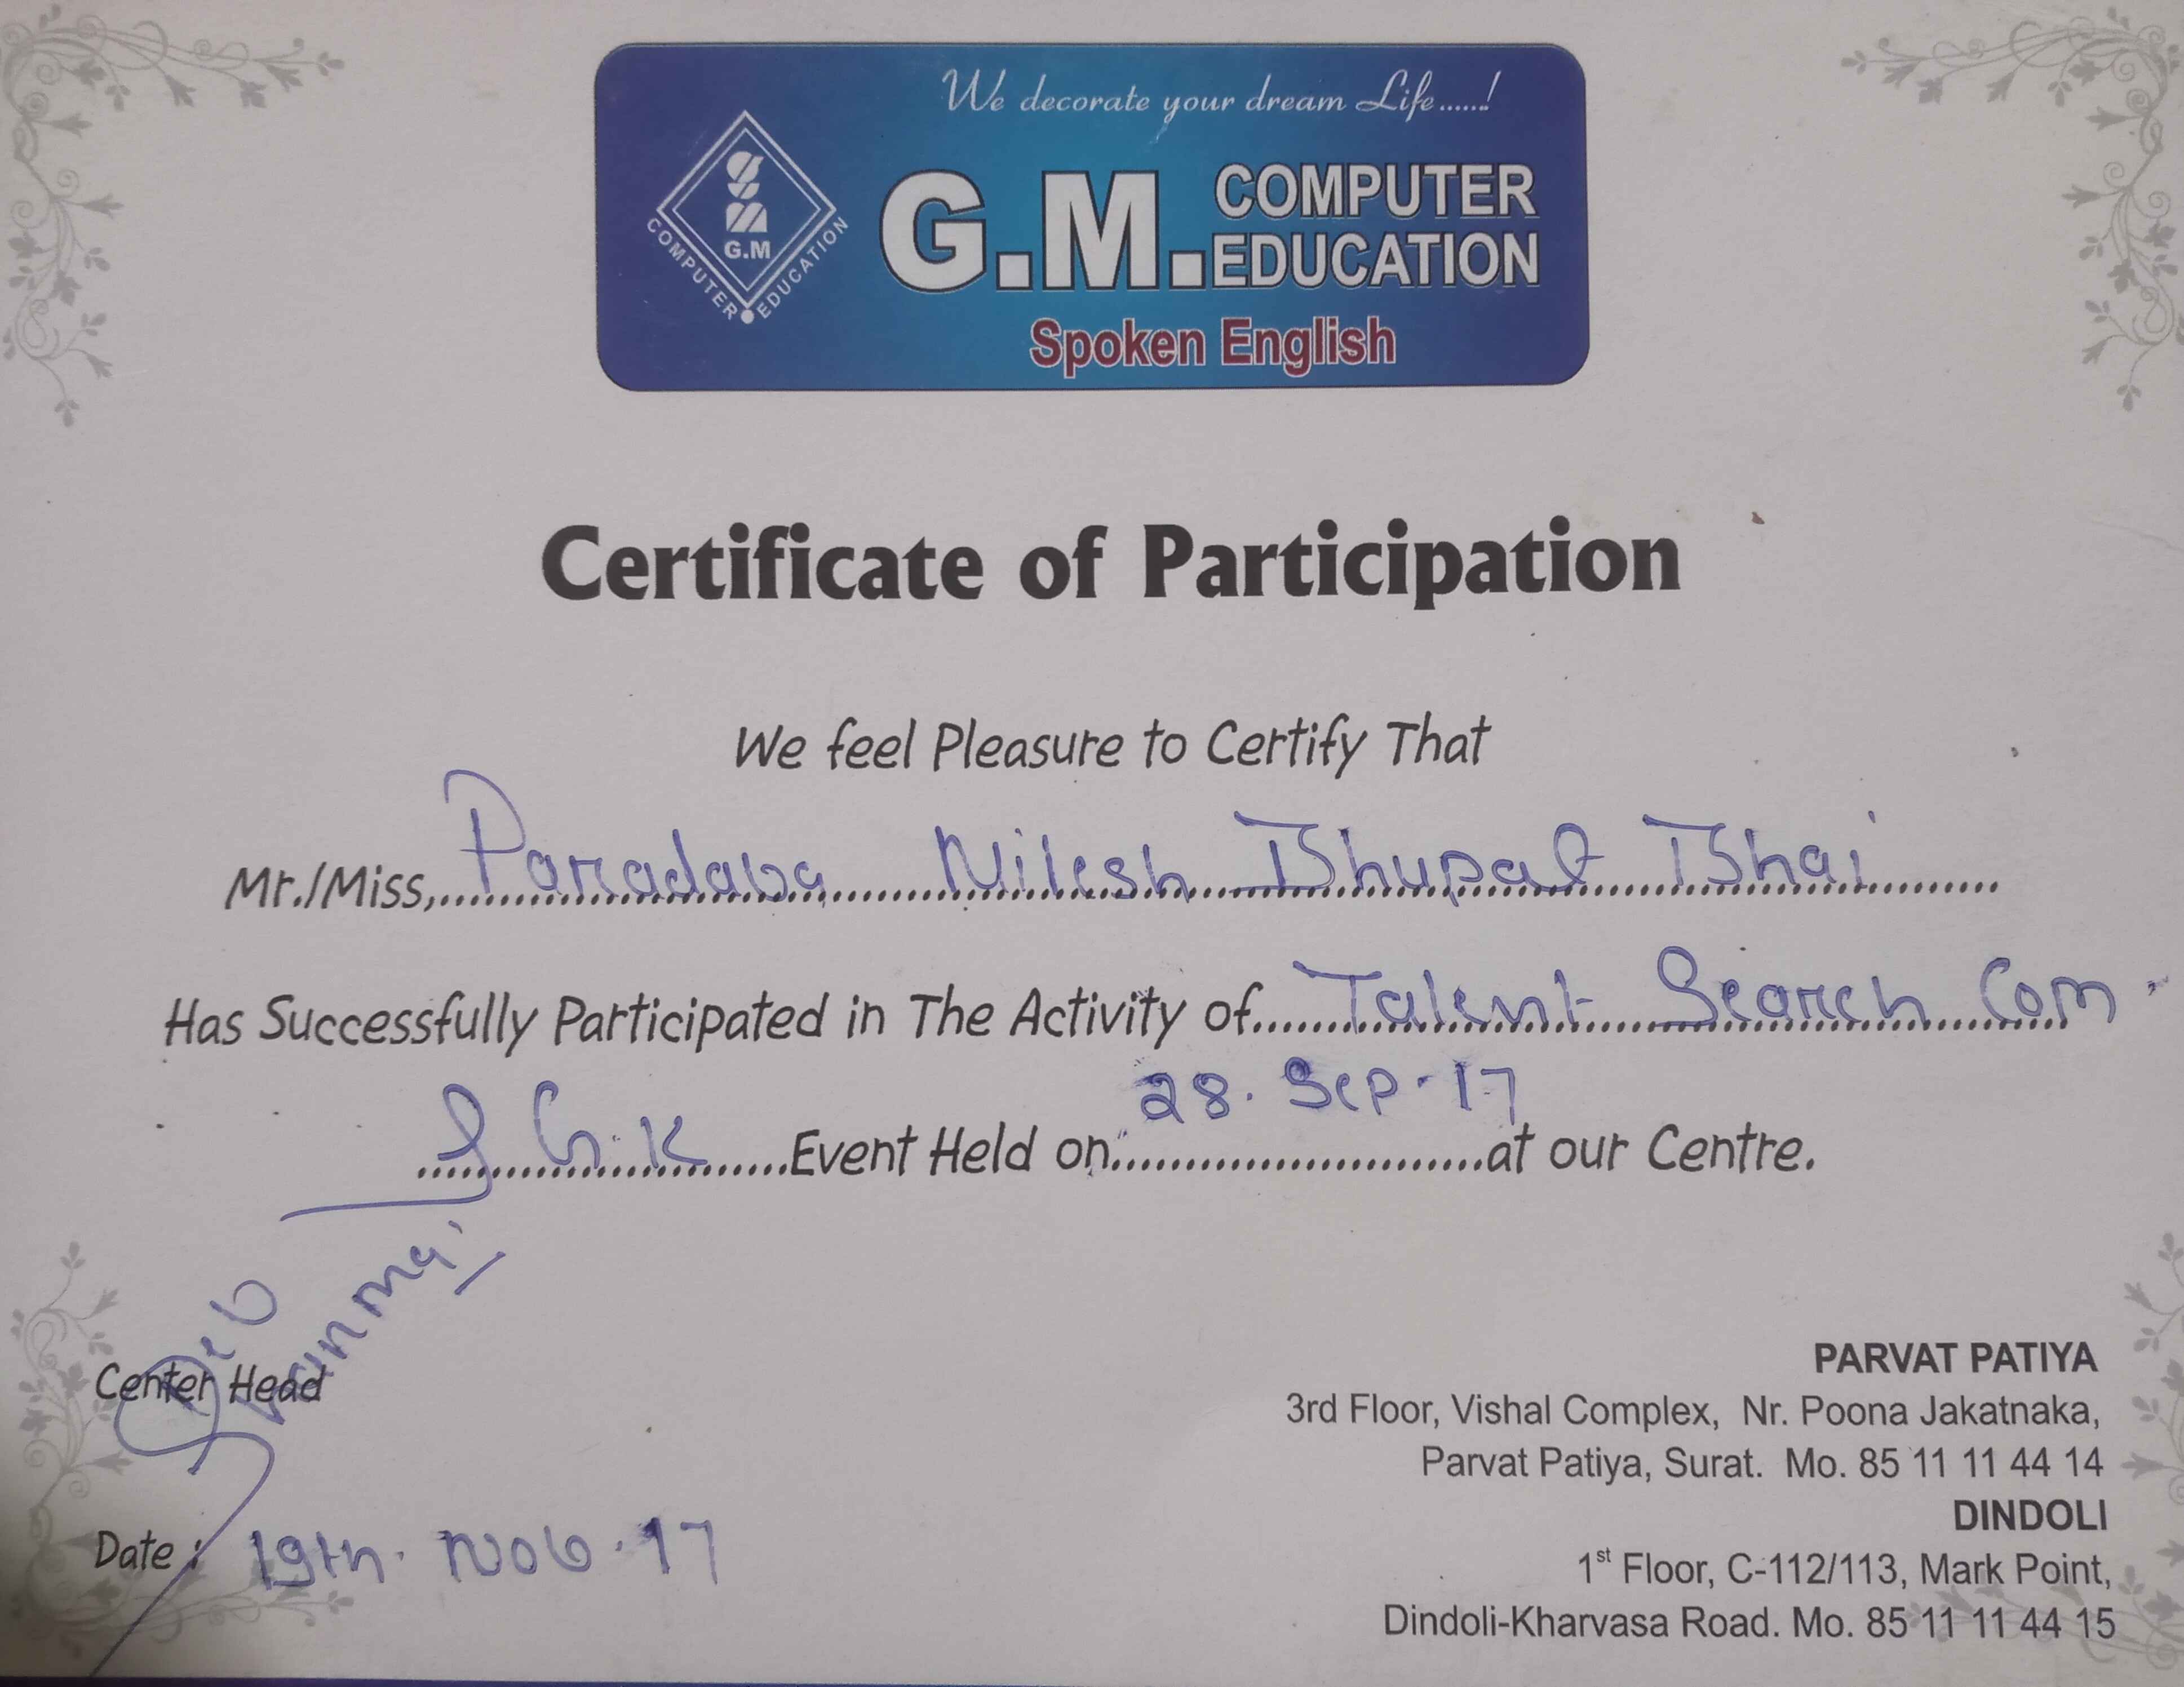 We decorate your dream Life......!
G.M
COMPUTER EDUCATION
G.M. COMPUTER
EDUCATION
Spoken English
Certificate of Participation
We feel Pleasure to Certify That
Mr./Miss, Paradava Nilesh Bhupat Bhai
Has Successfully Participated in The Activity of Talent Search Com.
G.K Event Held on 28. Sep. 17 at our Centre.
Center Head
Date : 19th. Nov. 17
PARVAT PATIYA
3rd Floor, Vishal Complex, Nr. Poona Jakatnaka,
Parvat Patiya, Surat. Mo. 85 11 11 44 14
DINDOLI
1st Floor, C-112/113, Mark Point,
Dindoli-Kharvasa Road. Mo. 85 11 11 44 15